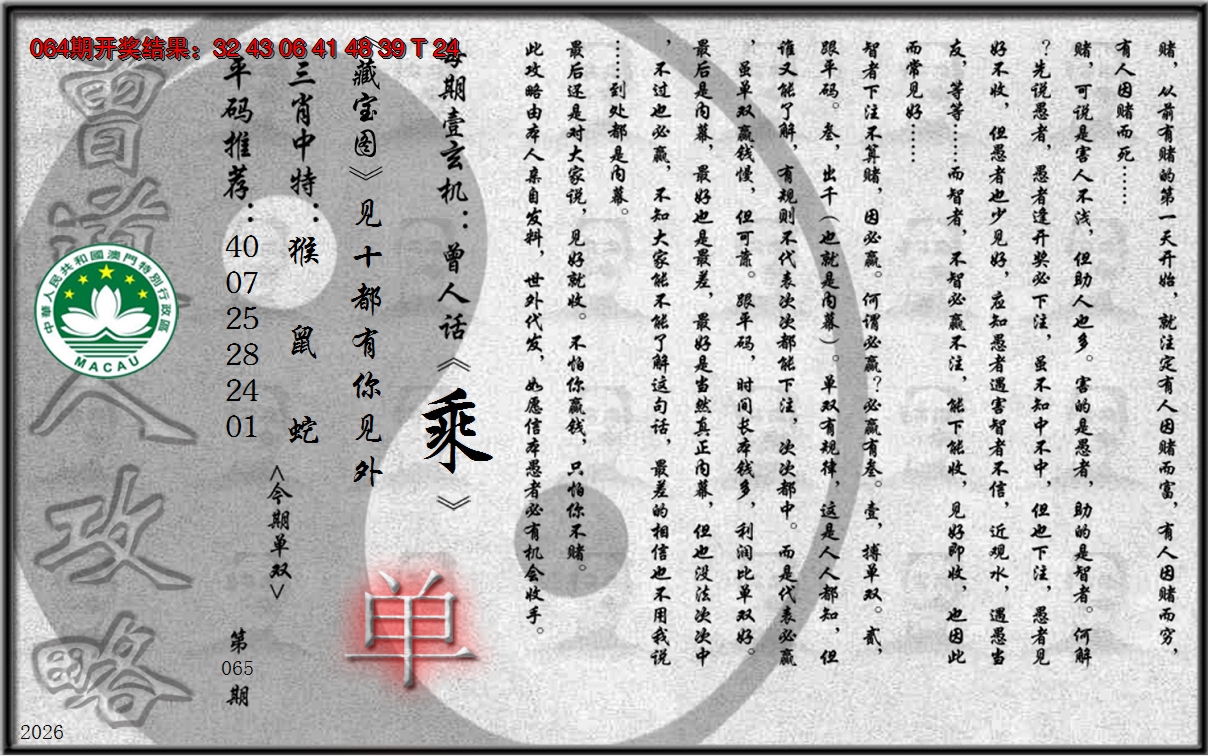 064期开奖结果：32 43 06 41 48 39 T 24
赌，从前有赌的第一天开始，就注定有人因赌而富，有人因赌而穷，
有人因赌而死……
赌，可说是害人不浅，但助人也多。害的是愚者，助的是智者。何解
？先说愚者，愚者逢开奖必下注，虽不知中不中，但也下注，愚者见
好不收，但愚者也少见好，应知愚者遇害智者不信，近观水，遇愚当
友，等等……而智者，不智必赢不注，能下能收，见好即收，也因此
而常见好……
智者下注不算赌，因必赢。何谓必赢？必赢有叁。壹，搏单双。贰，
跟平码。叁，出千（也就是内幕）。单双有规律，这是人人都知，但
谁又能了解，有规则不代表次次都能下注，次次都中。而是代表必赢
，虽单双赢钱慢，但可靠。跟平码，时间长本钱多，利润比单双好。
最后是内幕，最好也是最差，最好是当然真正内幕，但也没法次次中
，不过也必赢，不知大家能不能了解这句话，最差的相信也不用我说
……到处都是内幕。
最后还是对大家说，见好就收。不怕你赢钱，只怕你不赌。
此攻略由本人亲自发料，世外代发，如愿信本愚者必有机会收手。
每期壹玄机：曾人话《乘》
《藏宝图》见十都有你见外
三肖中特：猴 鼠 蛇
平码推荐：40 07 25 28 24 01
<今期单双>
单
第065期
曾道人攻略
中華人民共和國澳門特別行政區
MACAU
2026